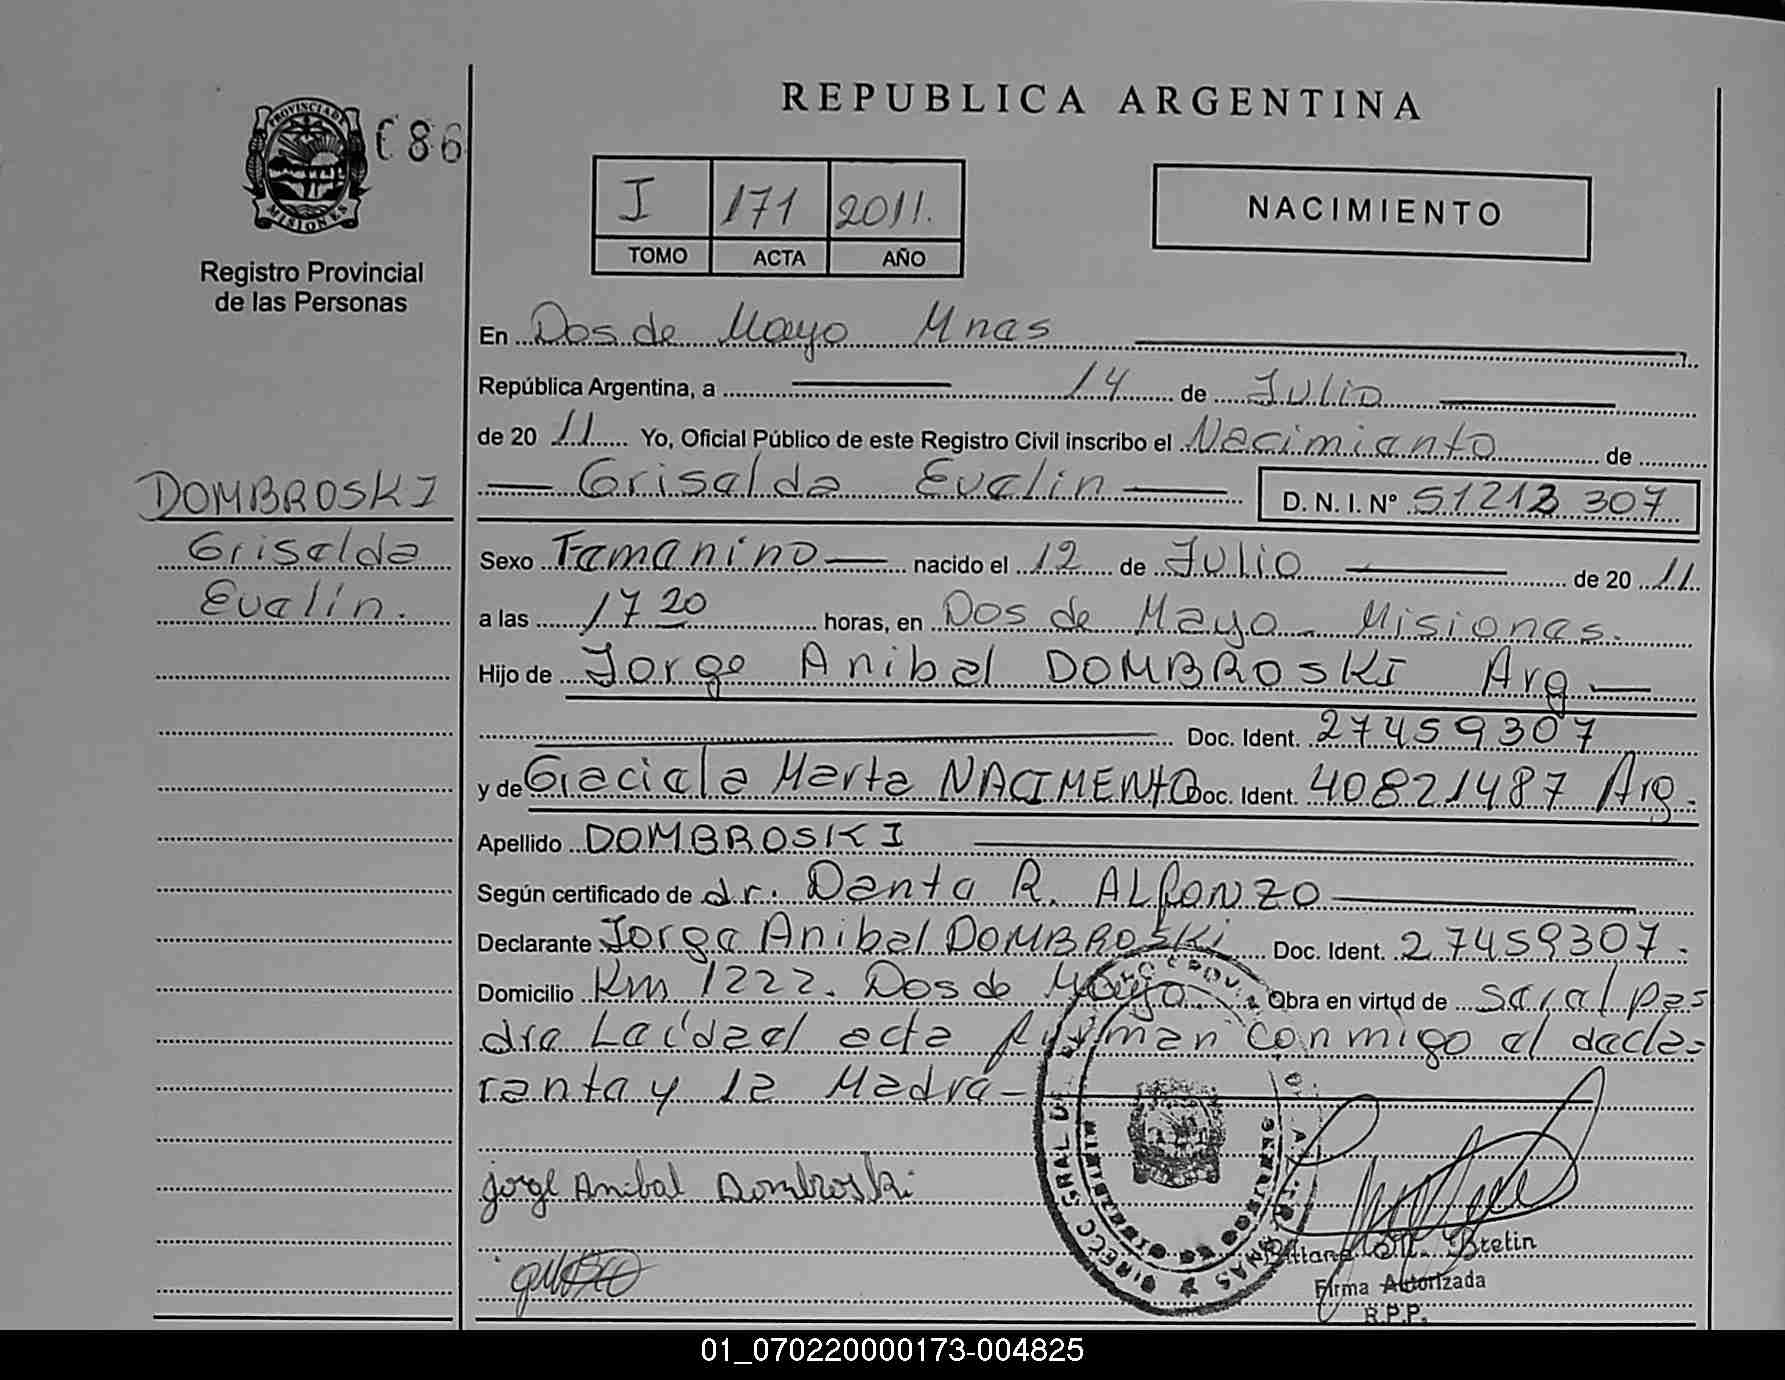 REPUBLICA ARGENTINA
PROVINCIA DE
MISIONES
C86
Registro Provincial
de las Personas
I 171 2011.
TOMO ACTA AÑO
NACIMIENTO
En Dos de Mayo Mnas
República Argentina, a 14 de Julio
de 20 11 Yo, Oficial Público de este Registro Civil inscribo el Nacimianto de
Griselda Evelin D. N. I. Nº 51212 307
DOMBROSKI
Griselda
Evelin.
Sexo Famanino nacido el 12 de Julio de 20 11
a las 17 20 horas, en Dos de Mayo - Misiones.
Hijo de Jorge Anibal DOMBROSKI Arg
Doc. Ident. 27459307
y de Graciela Marta NACIMENTO Doc. Ident. 40821487 Arg.
Apellido DOMBROSKI
Según certificado de dr. Danta R. ALFONZO
Declarante Jorge Anibal DOMBROSKI Doc. Ident. 27459307.
Domicilio Km 1222. Dos de Mayo Obra en virtud de ser el pa
dre Leída el acta firman conmigo el decla
rante y la Madre
jorge Anibal Dombroski
Bretin
Firma Autorizada
R.P.P.
01_070220000173-004825